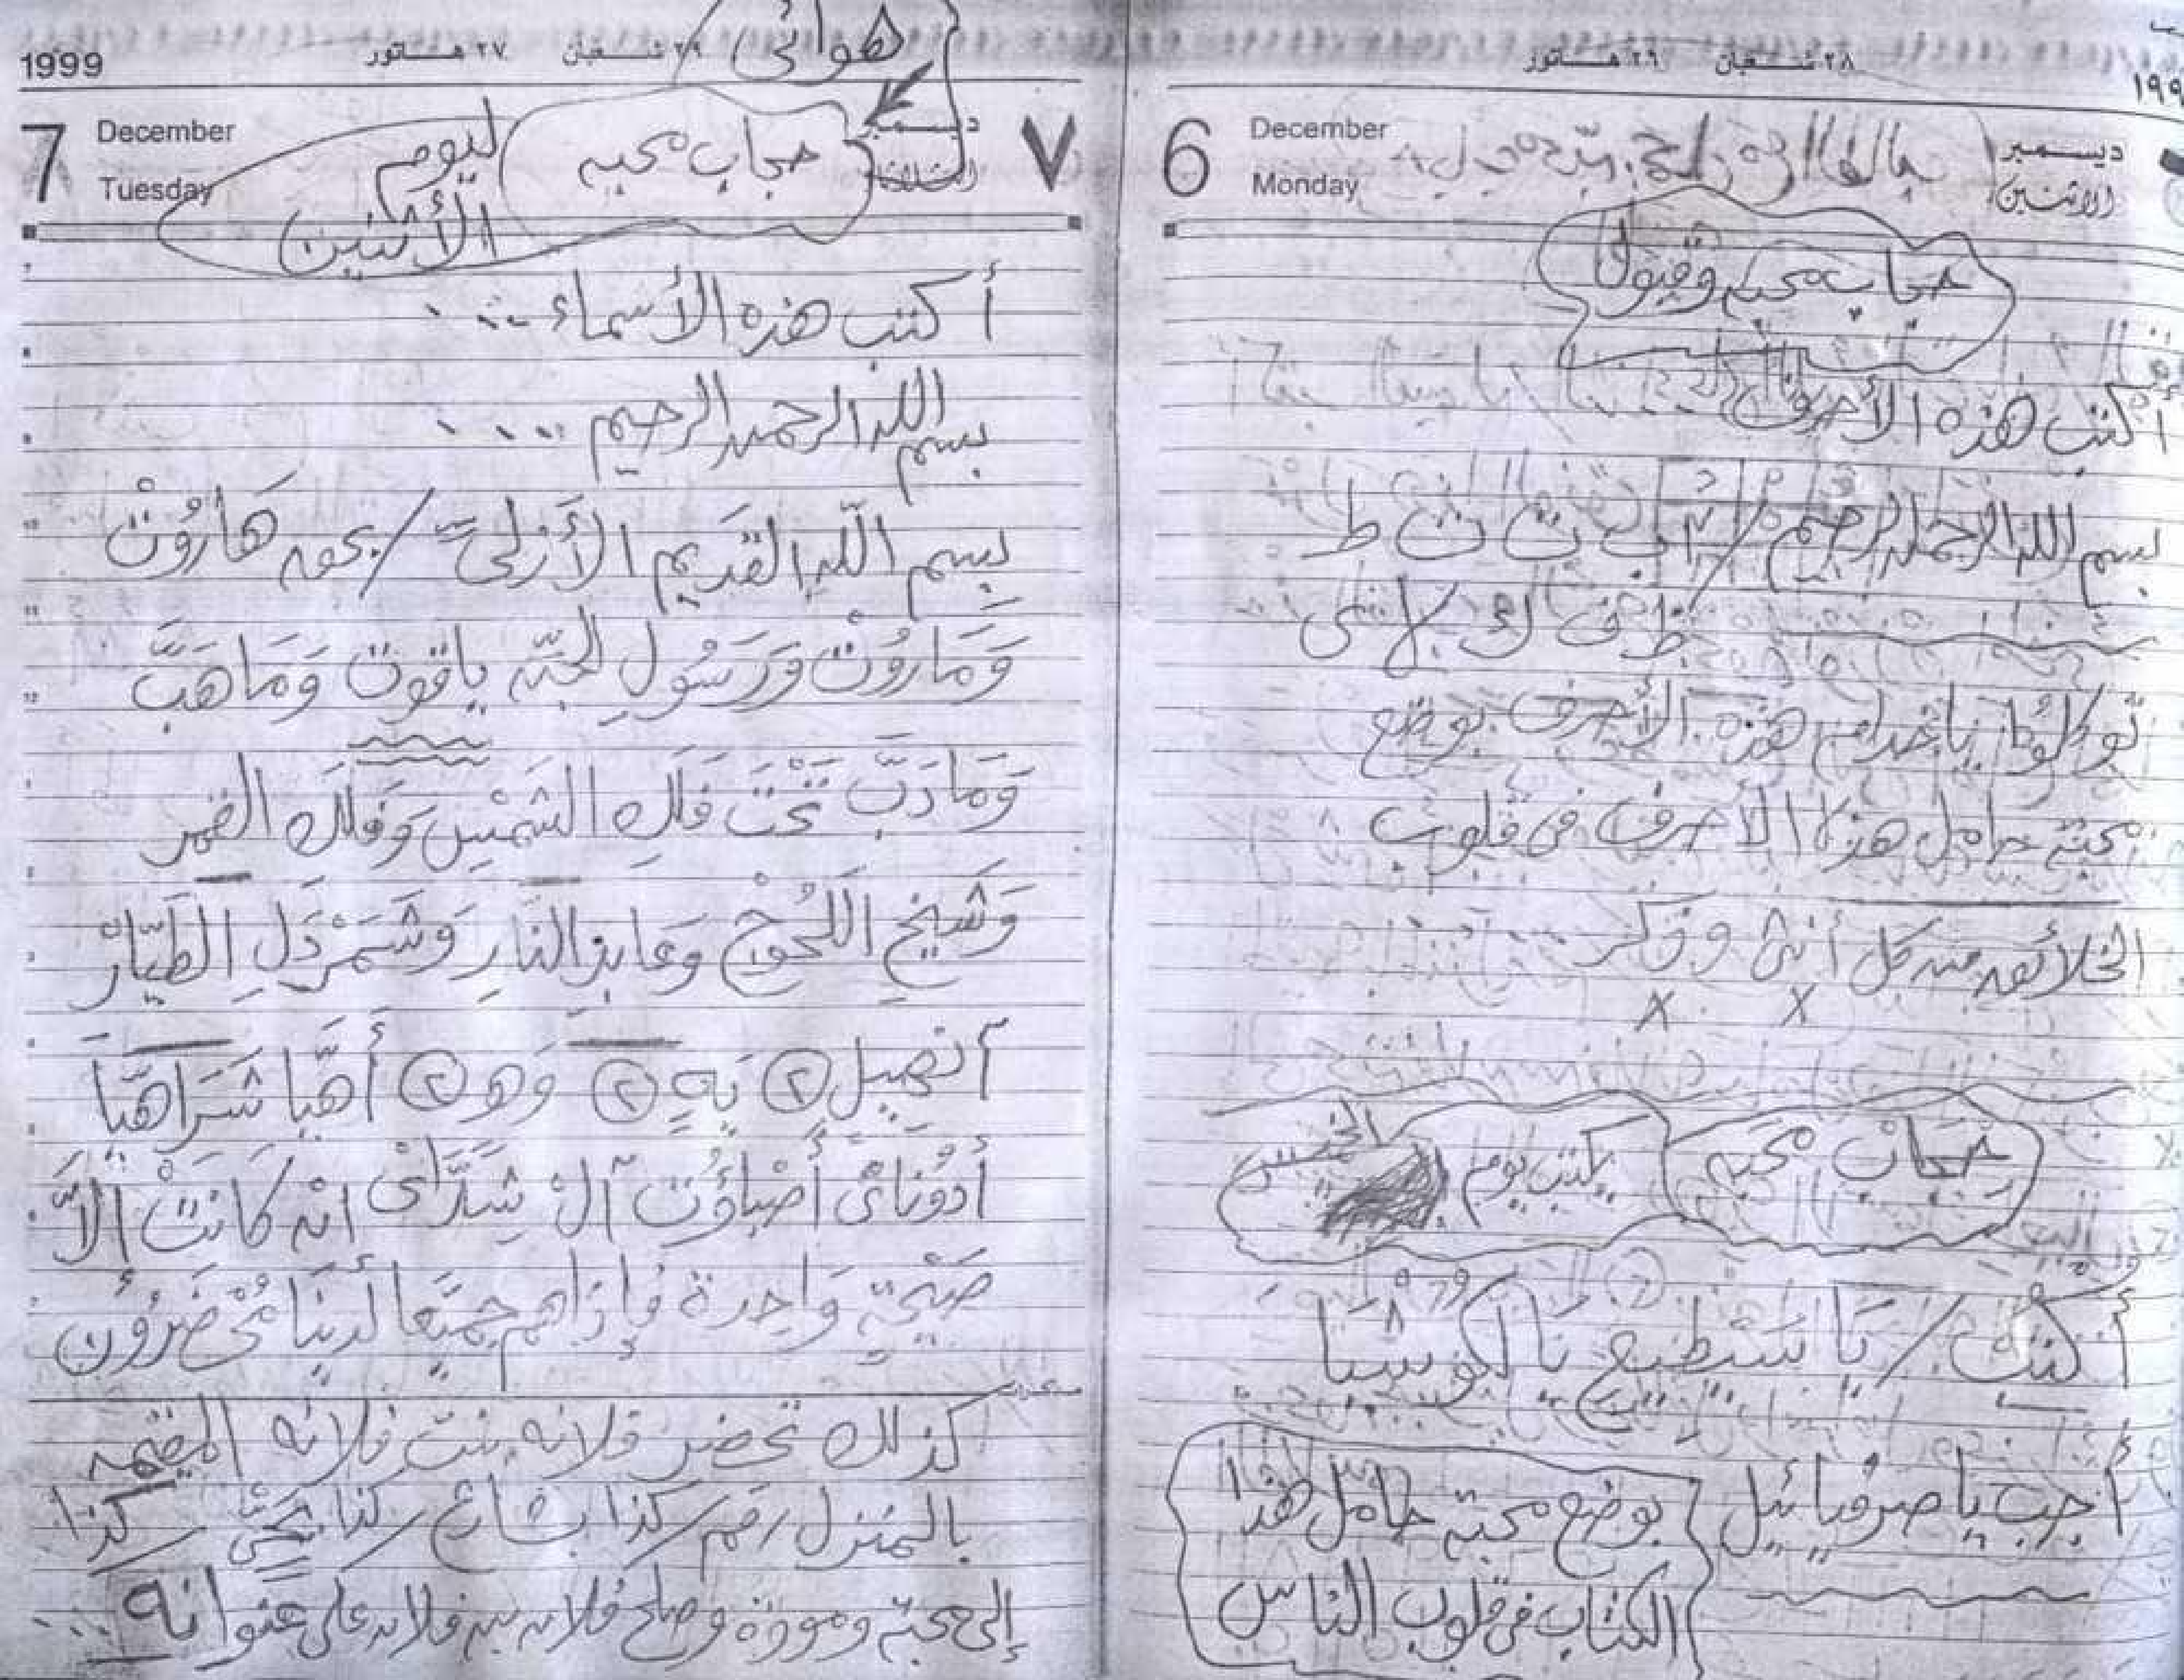 ٢٨ شعبان ٢٦ هاتور
6 December ديسمبر
Monday الاثنين
حجاب محبه وقبول
أكتب هذه الأحرف
بسم الله الرحمن الرحيم / أ ب ت ث ط
ظ ف ك لا ى
توكلوا يا خدام هذه الأحرف بوضع
محبة حامل هذا الاحرف فى قلوب
الخلائق من كل أنثى وذكر
x x
حجاب محبه يكتب يوم الخميس
أكتب / يا
أجب يا صرفيائيل
بوضع محبة حامل هذا
الكتاب فى قلوب الناس
1999 ٢٧ هاتور ٢٩ شعبان
هوائى
7 December ديسمبر ٧
Tuesday الثلاثاء
حجاب محبه
ليوم
الأثنين
أكتب هذه الأسماء ....
بسم الله الرحمن الرحيم ....
بِسم اللَّهِ القَدِيمِ الأَزَلىِّ / بحق هَارُوْتْ
وَمَارُوْتْ وَرَسُولِ الجنّ ياقوت وَمَا هَبَّ
وَمَا دَبَّ تَحْتَ فَلَكِ الشَمْسِ وَفَلَكِ القمر
وَشَيخِ وَعَابِدِ النَارِ وَشَمَرْدَلِ الطَيَّارْ
٢ يَهٍ ٢ وَهٍ ٢ أَهْيَا شَرَاهْيَا
أَدُوْنَاىْ أَصْبَاؤُت آلْ شَدَّاىْ انْ كَانَتْ الاَّ
صَيْحَةً وَاحِدة فَإِذَاهم جَمِيْعَا لدينَا مُحْضَرُوُن
كذلك تحضر فلانه بنت فلانه المقيمه
بالمنزل رقم كذا بشارع كذا بحىّ كذا
إلى محبة ومودة وصلح فلان بن فلان على عنوانه ....